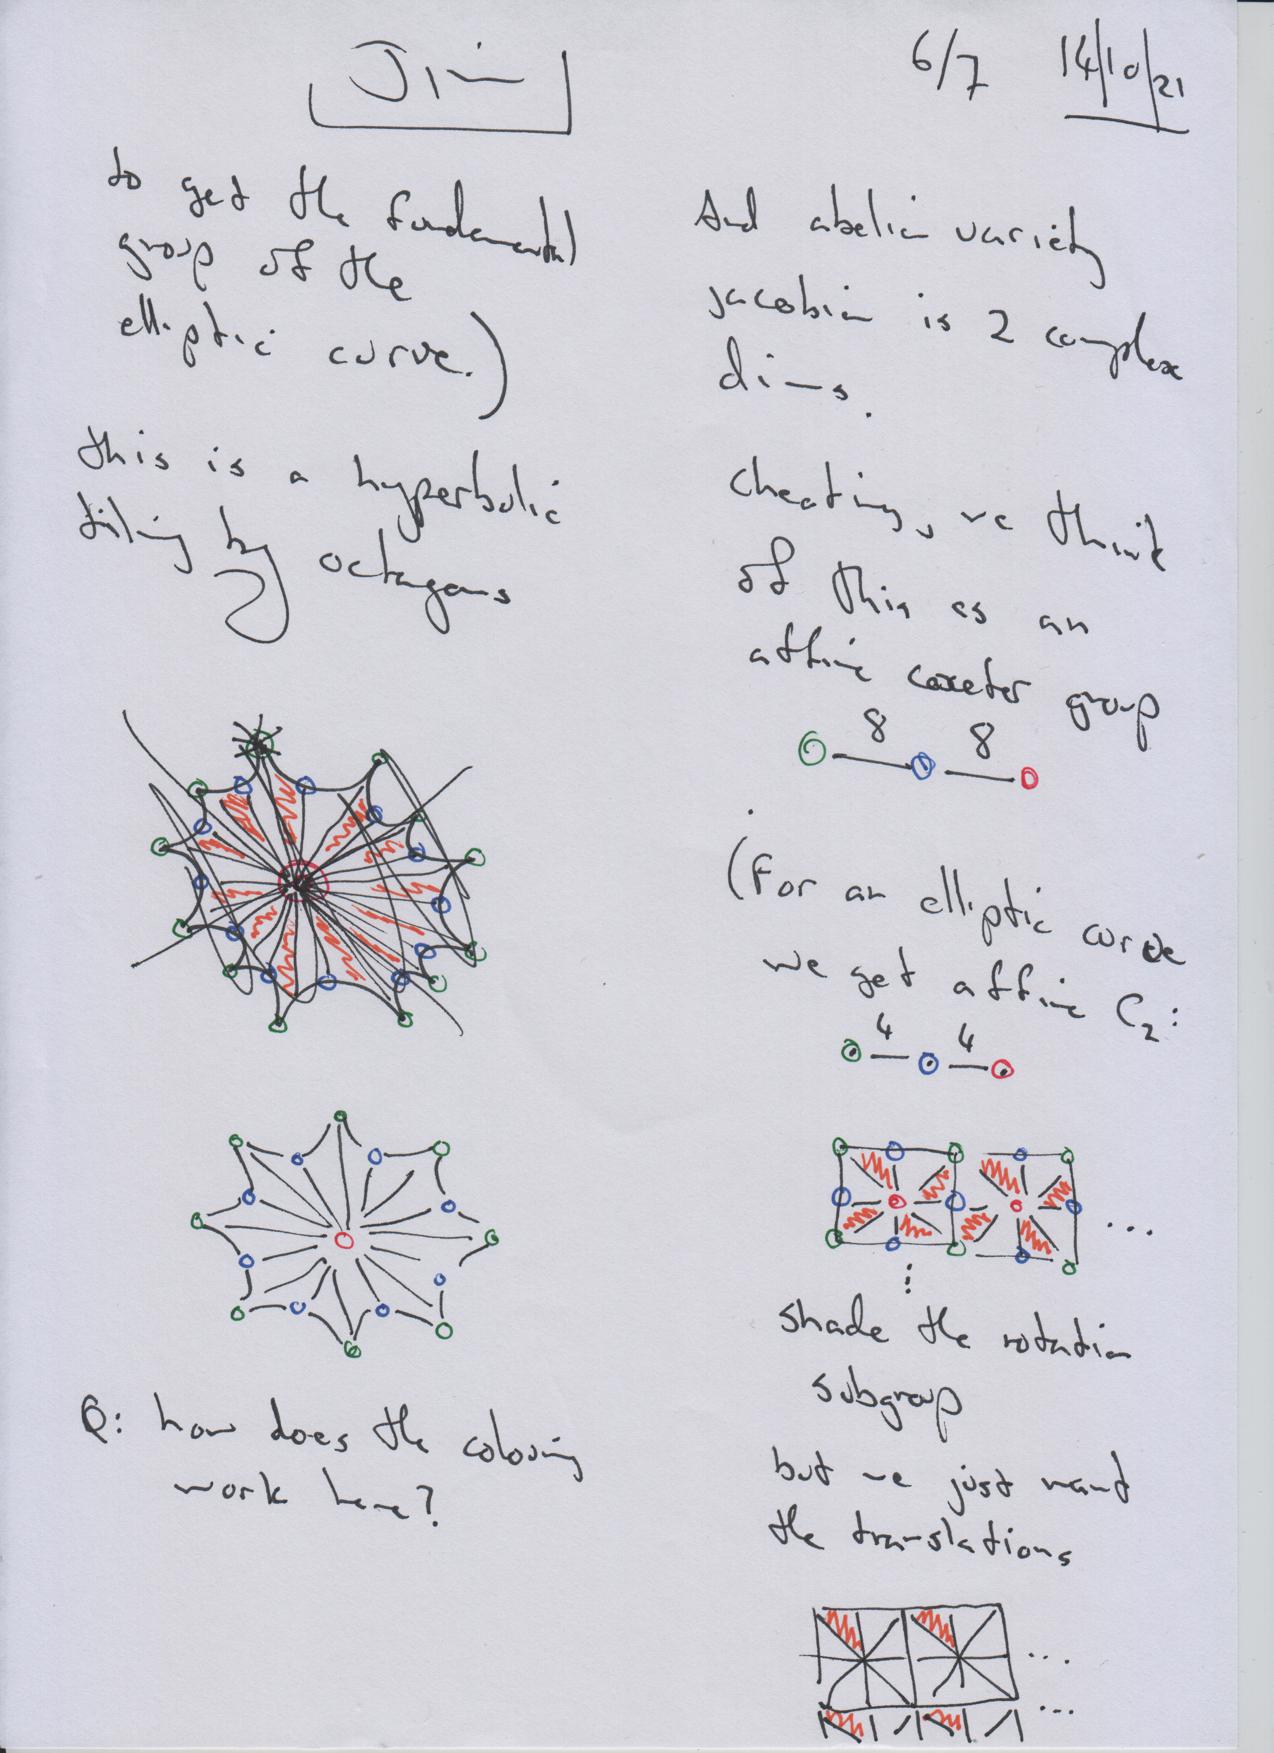 Jim
6/7 14/10/21
to get the fundamental
group of the
elliptic curve.)
this is a hyperbolic
tiling by
octagons
Q: how does the colouring
work here?
And abelian variety
jacobian is 2 complex
dims.
Cheating, we think
of this as an
affine coxeter group
8 8
(For an elliptic curve
we get affine C2:
4 4
...
⋮
shade the rotation
subgroup
but we just want
the translations
...
...